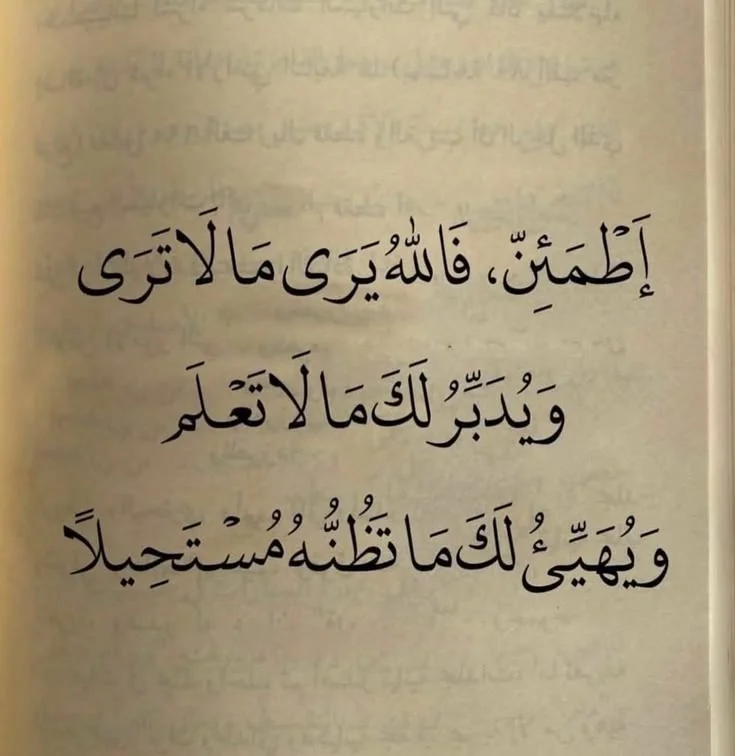 إَطْمَئِنّ، فَاللهُ يَرَى مَا لَا تَرَى
وَيُدَبِّرُ لَكَ مَا لَا تَعْلَم
وَيُهَيِّئُ لَكَ مَا تَظُنُّهُ مُسْتَحِيلاً